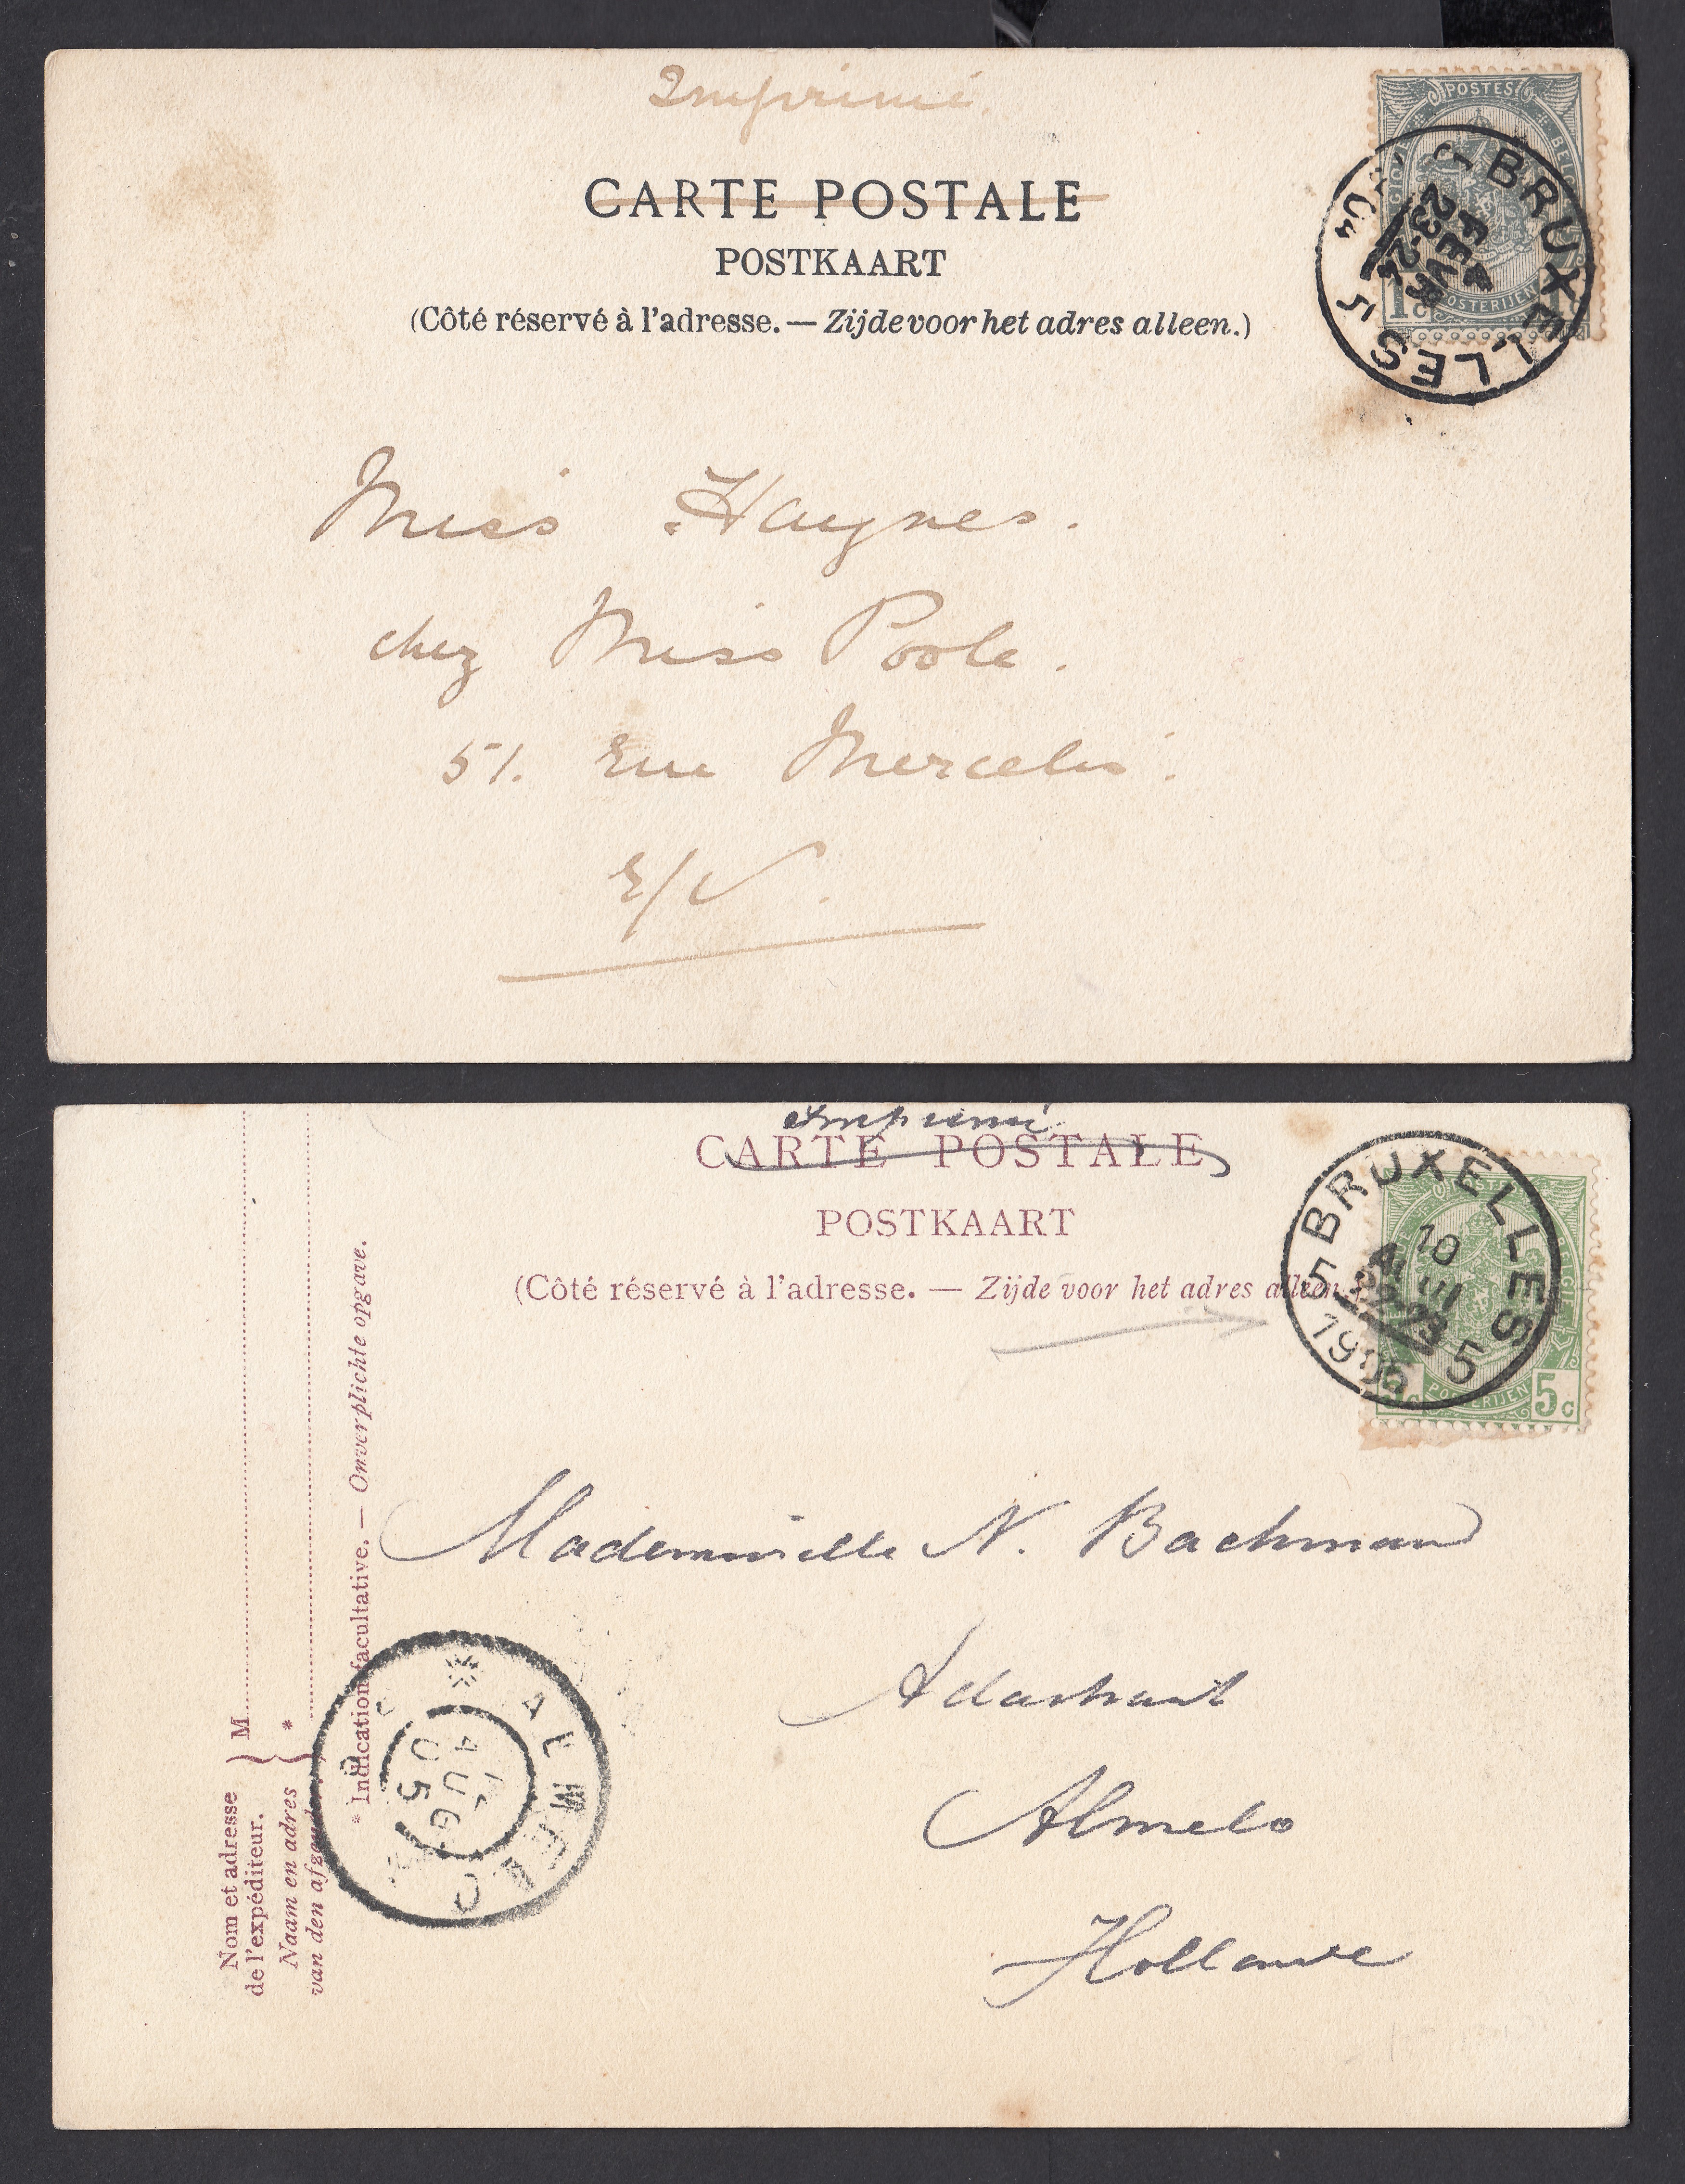 Imprimé
CARTE POSTALE
POSTKAART
(Côté réservé à l'adresse. — Zijde voor het adres alleen.)
POSTES
BELGIQUE
POSTERIJEN
1c
BRUXELLES
4
FEVR
23-24
04
5
Miss Haynes.
chez Miss Poole.
51. Rue Mercelis.
E/V.
Imprimé
CARTE POSTALE
POSTKAART
(Côté réservé à l'adresse. — Zijde voor het adres alleen.)
POSTERIJEN
5c
5 BRUXELLES 5
10
22-23
1905
Mademoiselle N. Bachmann
Almelo
Hollande
Nom et adresse
de l'expéditeur.
M
Naam en adres
van den afzender.
*
* Indication facultative. — Onverplichte opgave.
ALMELO
AUG
05